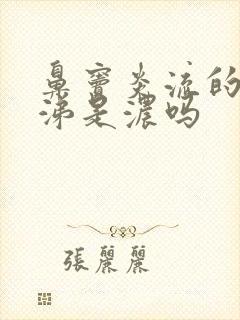 鼻窦炎流的
涕是浓吗
張麗麗